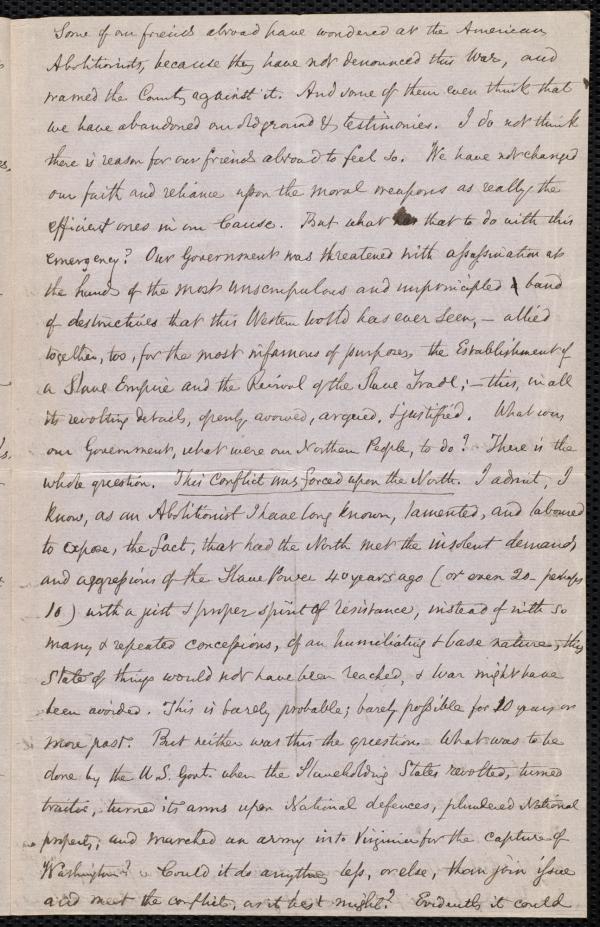 Some of our friends abroad have wondered at the American
Abolitionists, because they have not denounced this War, and
warned the Country against it. And some of them even think that
we have abandoned our old ground & testimonies. I do not think
there is reason for our friends abroad to feel so. We have not changed
our faith and reliance upon the moral weapons as really the
efficient ones in our Cause. But what has that to do with this
emergency? Our Government was threatened with assassination at
the hands of the most unscrupulous and unprincipled band
of destructives that this Western World has ever seen, – allied
together, too, for the most infamous of purposes, the Establishment of
a Slave Empire and the Revival of the Slave Trade; – this, in all
its revolting details, openly avowed, argued, & justified. What was
our Government, what were our Northern People, to do? There is the
whole question. This Conflict was forced upon the North. I admit, I
know, as an Abolitionist I have long known, lamented, and laboured
to expose, the fact, that had the North met the insolent demands
and aggressions of the Slave Power 40 years ago (or even 20 – perhaps
10) with a just & proper spirit of resistance, instead of with so
many & repeated concessions, of an humiliating & base nature, this
State of things would not have been reached, & War might have
been avoided. This is barely probable; barely possible for 20 years or
more past. But neither was this the question. What was to be
done by the U.S. Govt. when the Slaveholding States revolted, turned
traitor, turned its arms upon National defences, plundered National
property, and marched an army into Virginia for the capture of
Washington? Could it do anything less, or else, than join issue
and meet the conflict, as it best might? Evidently it could